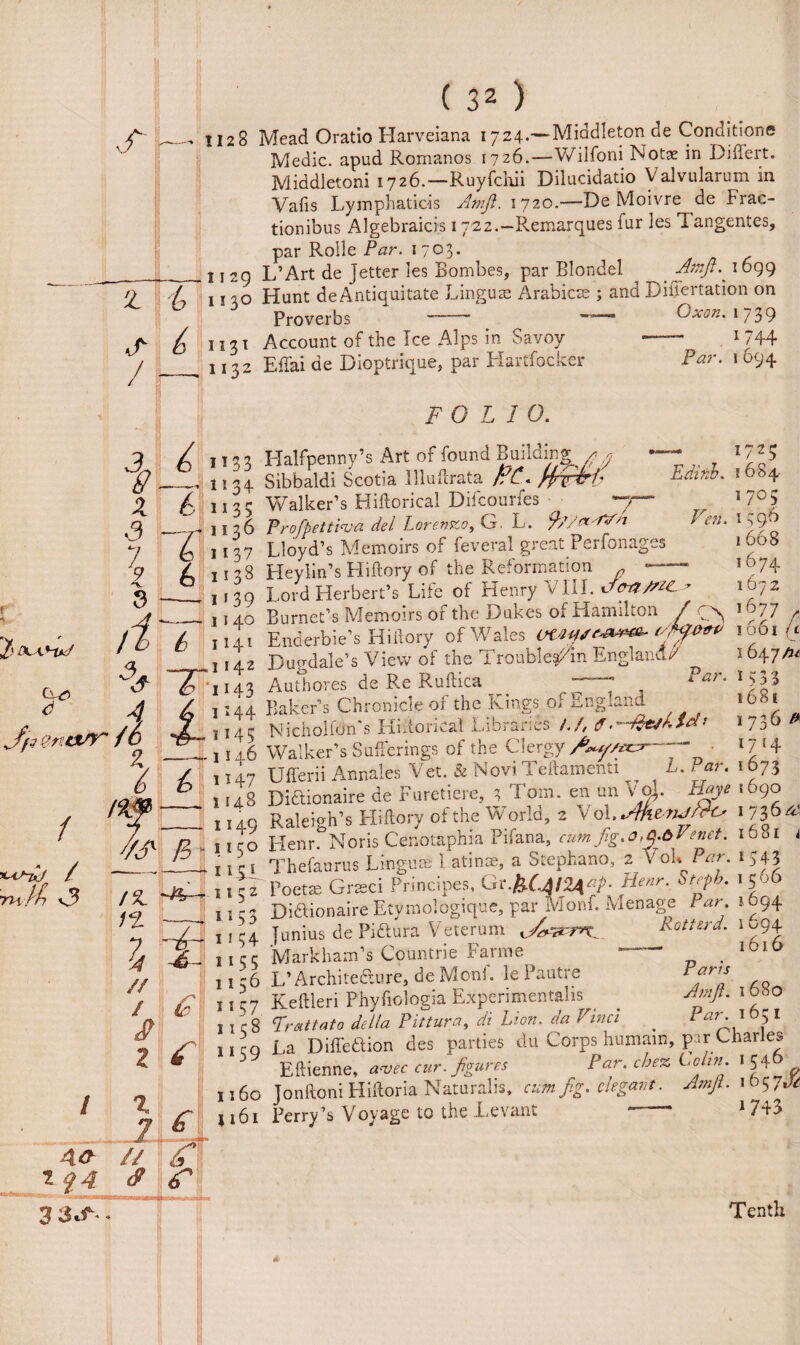 ( 32 )
1128 Mead Oratio Harveiana 1724.—Middleton de Conditione
Medic. apud Romanos 1726.—Wilsoni Notæ in Dissert.
Middletoni 1726.—Ruyschii Dilucidatio Valvularum in
Vasis Lymphaticis Amst. 1720.—De Moivre de Frac-
tionibus Algebraicis 1722.—Remarques sur les Tangentes,
par Rolle Par. 1703.
2 1129 L'Art de Jetter les Bombes, par Blondel Amst. 1699
6 1130 Hunt de Antiquitate Linguæ Arabicæ ; and Dissertation on
Proverbs —— —— Oxon. 1739
6 1131 Account of the Ice Alps in Savoy —— 1744
1 — 1132 Essai de Dioptrique, par Hartsocker Par. 1694
FOLIO.
3 6 1133 Halfpenny's Art of sound Building —— 1725
8 — 1134 Sibbaldi Scotia Illustrata Edinb. 1684
2 6 1135 Walker's Historical Discourses —— 1705
3 — 1136 Prospettiva del Lorenzo, G. L. Ven. 1596
7 6 1137 Lloyd's Memoirs of several great Personages 1668
2 6 1138 Heylin's History of the Reformation —— 1674
3 — 1139 Lord Herbert's Life of Henry VIII. 1672
4 — 1140 Burnet's Memoirs of the Dukes of Hamilton 1677
12 6 1141 Enderbie's History of Wales 1661
3 — 1142 Dugdale's View of the Troubles in England 1647
6 1143 Authores de Re Rustica —— Par. 1533
4 6 1144 Baker's Chronicle of the Kings of England 1681
16 1145 Nicholson's Historical Libraries 1736
2 — 1146 Walker's Sufferings of the Clergy —— 1714
6 6 1147 Usserii Annales Vet. & Novi Testamenti L. Par. 1673
1148 Dictionaire de Furetiere, 3 Tom. en un Vol. Haye 1690
1149 Raleigh's History of the World, 2 Vol. 1736
1150 Henr. Noris Cenotaphia Pisana, cum fig. Venet. 1681
1151 Thesaurus Linguæ Latinæ, a Stephano, 2 Vol. Par. 1543
1152 Poetæ Græci Principes, Gr. ap. Henr. Steph. 1566
1153 Dictionaire Etymologique, par Mons. Menage Par. 1694
1154 Junius de Pictura Veterum Rotterd. 1694
1155 Markham's Countrie Farme —— 1616
1156 L'Architecture, de Mons. le Pautre Paris
1157 Kestleri Physiologia Experimentalis Amst. 1680
1158 Trattato della Pittura, di Lion. da Vinci Par. 1651
1159 La Dissection des parties du Corps humain, par Charles
Estienne, avec cur. figures Par. chez Colin. 1546
1160 Jonstoni Historia Naturalis, cum fig. elegant. Amst. 1657
1161 Perry's Voyage to the Levant —— 1743
Tenth